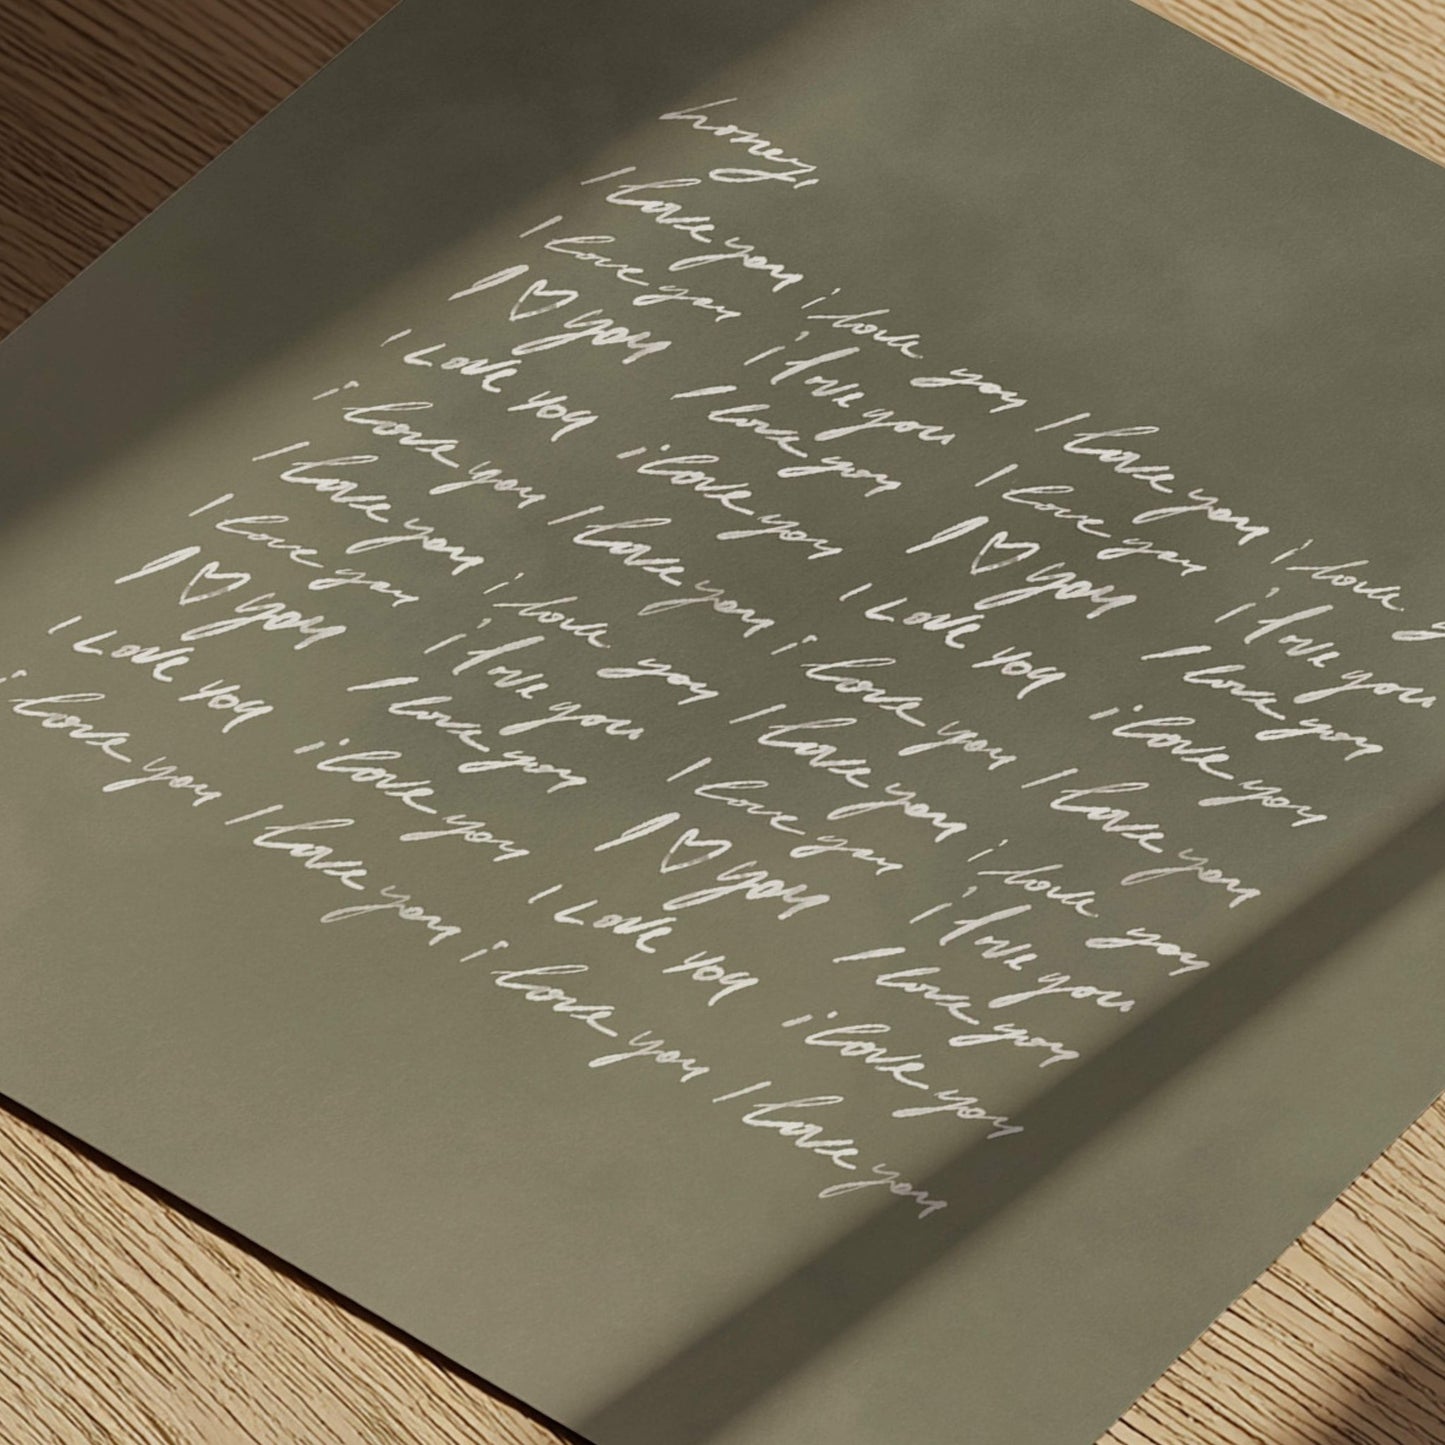 honey,
I love you i love you I love you i love y
I love you i love you I love you i love you
I ♡ you I love you I ♡ you I love you
I Love you i love you I Love you i love you
i love you I love you i love you I love you
I love you i love you I love you i love you
I love you i love you I love you i love you
I ♡ you I love you I ♡ you I love you
I Love you i love you I Love you i love you
i love you I love you i love you I love you